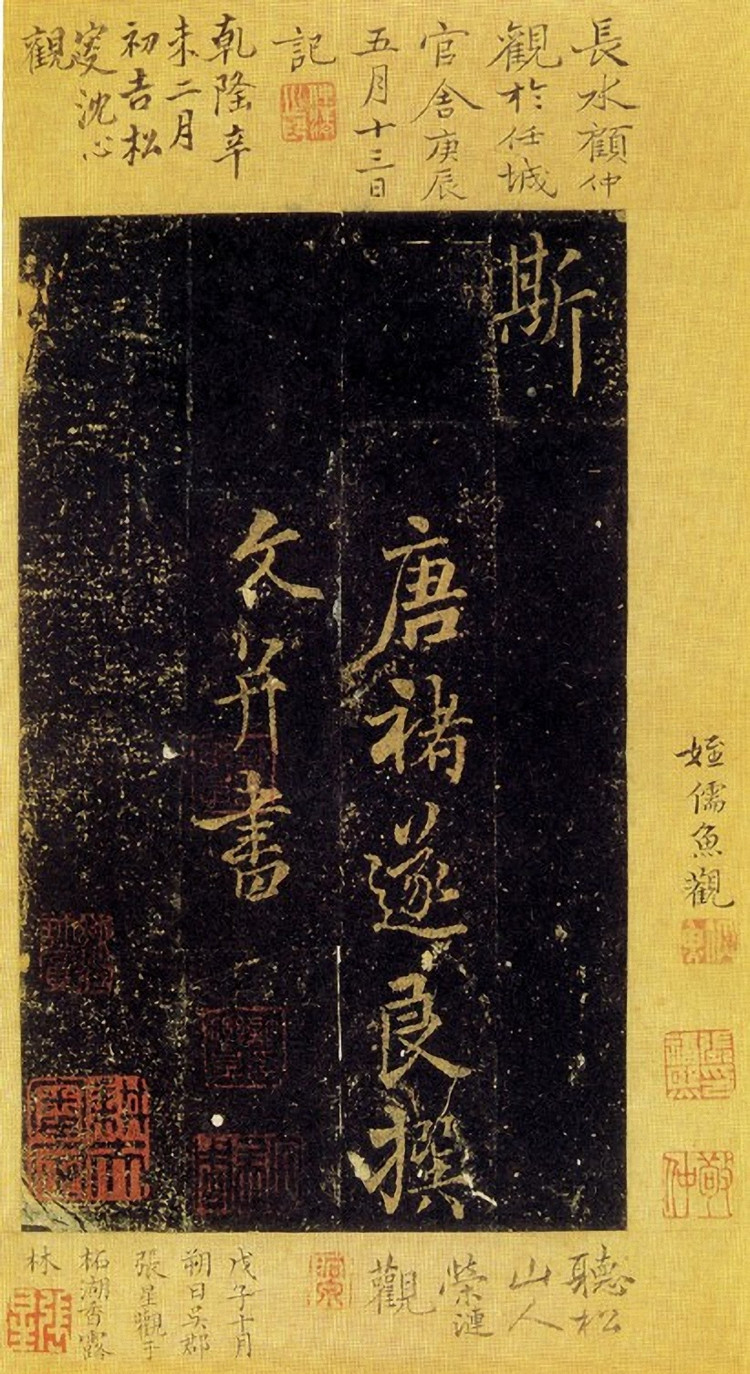 長水顧仲
觀於任城
官舍庚辰
五月十三日
記
乾隆辛
未二月
初吉松
窔沈心
觀
斯
唐褚遂良撰
文并書
姪儒魚觀
敬仲
聽松
山人
榮漣
觀
戊子十月
朔日吳郡
張星觀于
柘湖香露
林